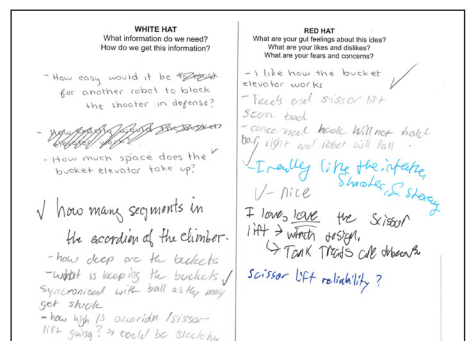 WHITE HAT
What information do we need?
How do we get this information?
- How easy would it be
for another robot to block
the shooter in defense?
- How much space does the
bucket elevator take up?
√ how many segments in
the accordion of the climber.
- how deep are the buckets
- what is keeping the buckets
syncronized with ball as they may
get stuck
- how high is accordin / sissor
lift going? → could be sketchy
RED HAT
What are your gut feelings about this idea?
What are your likes and dislikes?
What are your fears and concerns?
- I like how the bucket
elevator works
- Treads and sissor lift
seem bad
- concerned hook will not hold
bar right and robot will fall
- I really like the intake,
shooter, & storage
√ - nice
I loves love the scissor
lift → winch design.
↳ Tank Treads are
scissor lift reliability?